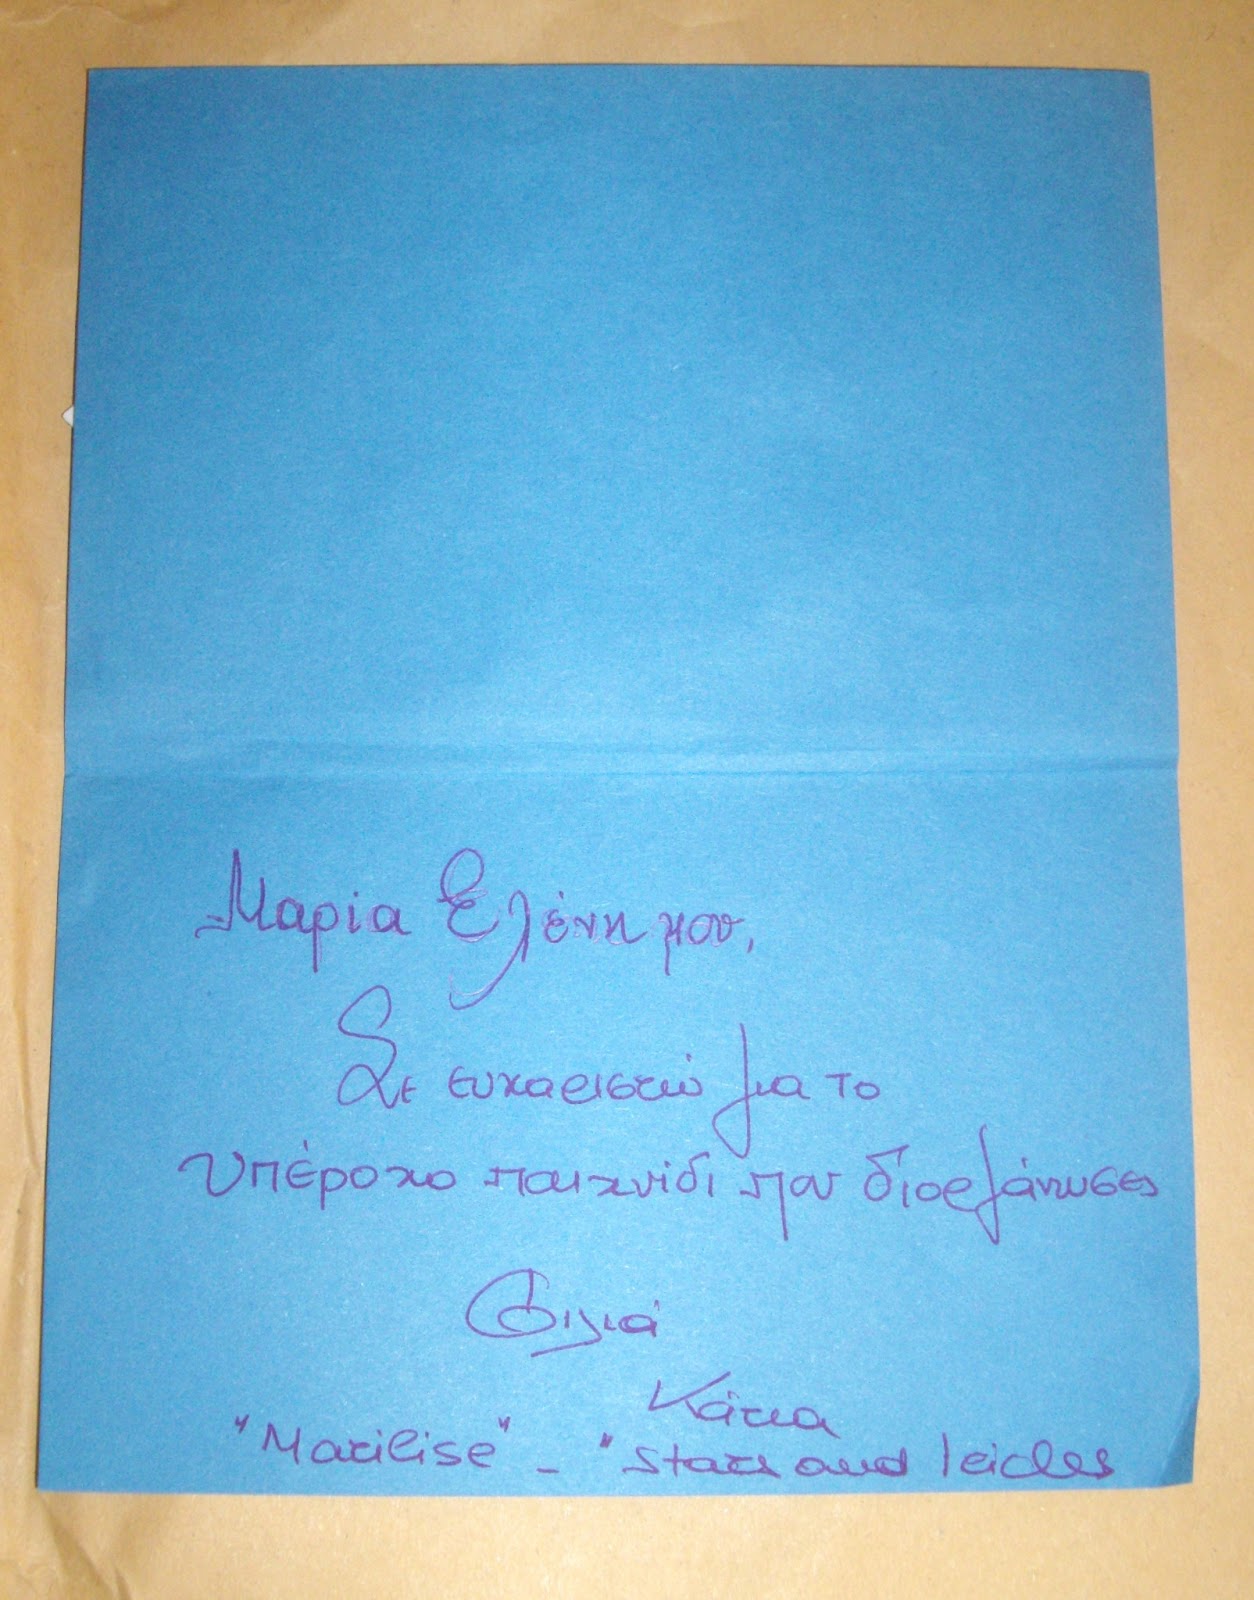 Μαρία Ελένη μου,
Σε ευχαριστώ για το
υπέροχο παιχνίδι που διοργάνωσες
Φιλιά
Κάτια
"Marilise" - "Stars and Icicles